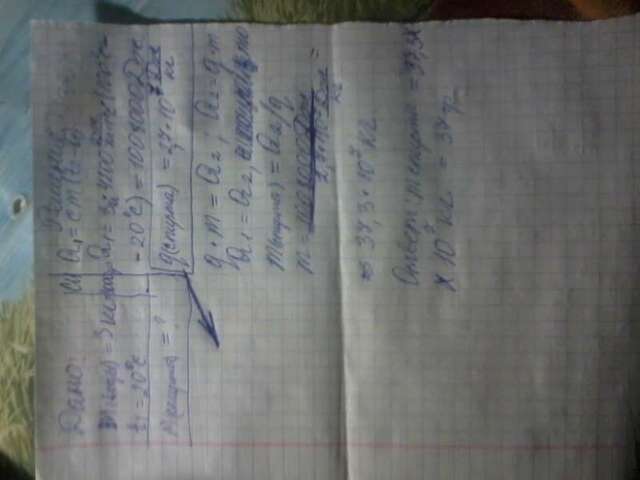 Дано:
m(воды) = 3 кг
t₁ = 20°C
m(спирта) = ?
СИ
Решение
Q₁ = cm(t₂-t₁)
Q₁ = 3 · 4200 (100°C-
-20°C) = 1008000 Дж
q(спирта) = 2,7 · 10⁷ Дж/кг
q · m = Q₂ ; Q₂ = q · m
Q₁ = Q₂,
m(спирта) = Q₂/q
m = 1008000 Дж / 2,7 · 10⁷ Дж/кг =
= 37,3 · 10⁷ кг
Ответ: m спирта = 37,3 ×
× 10⁷ кг = 37 гр